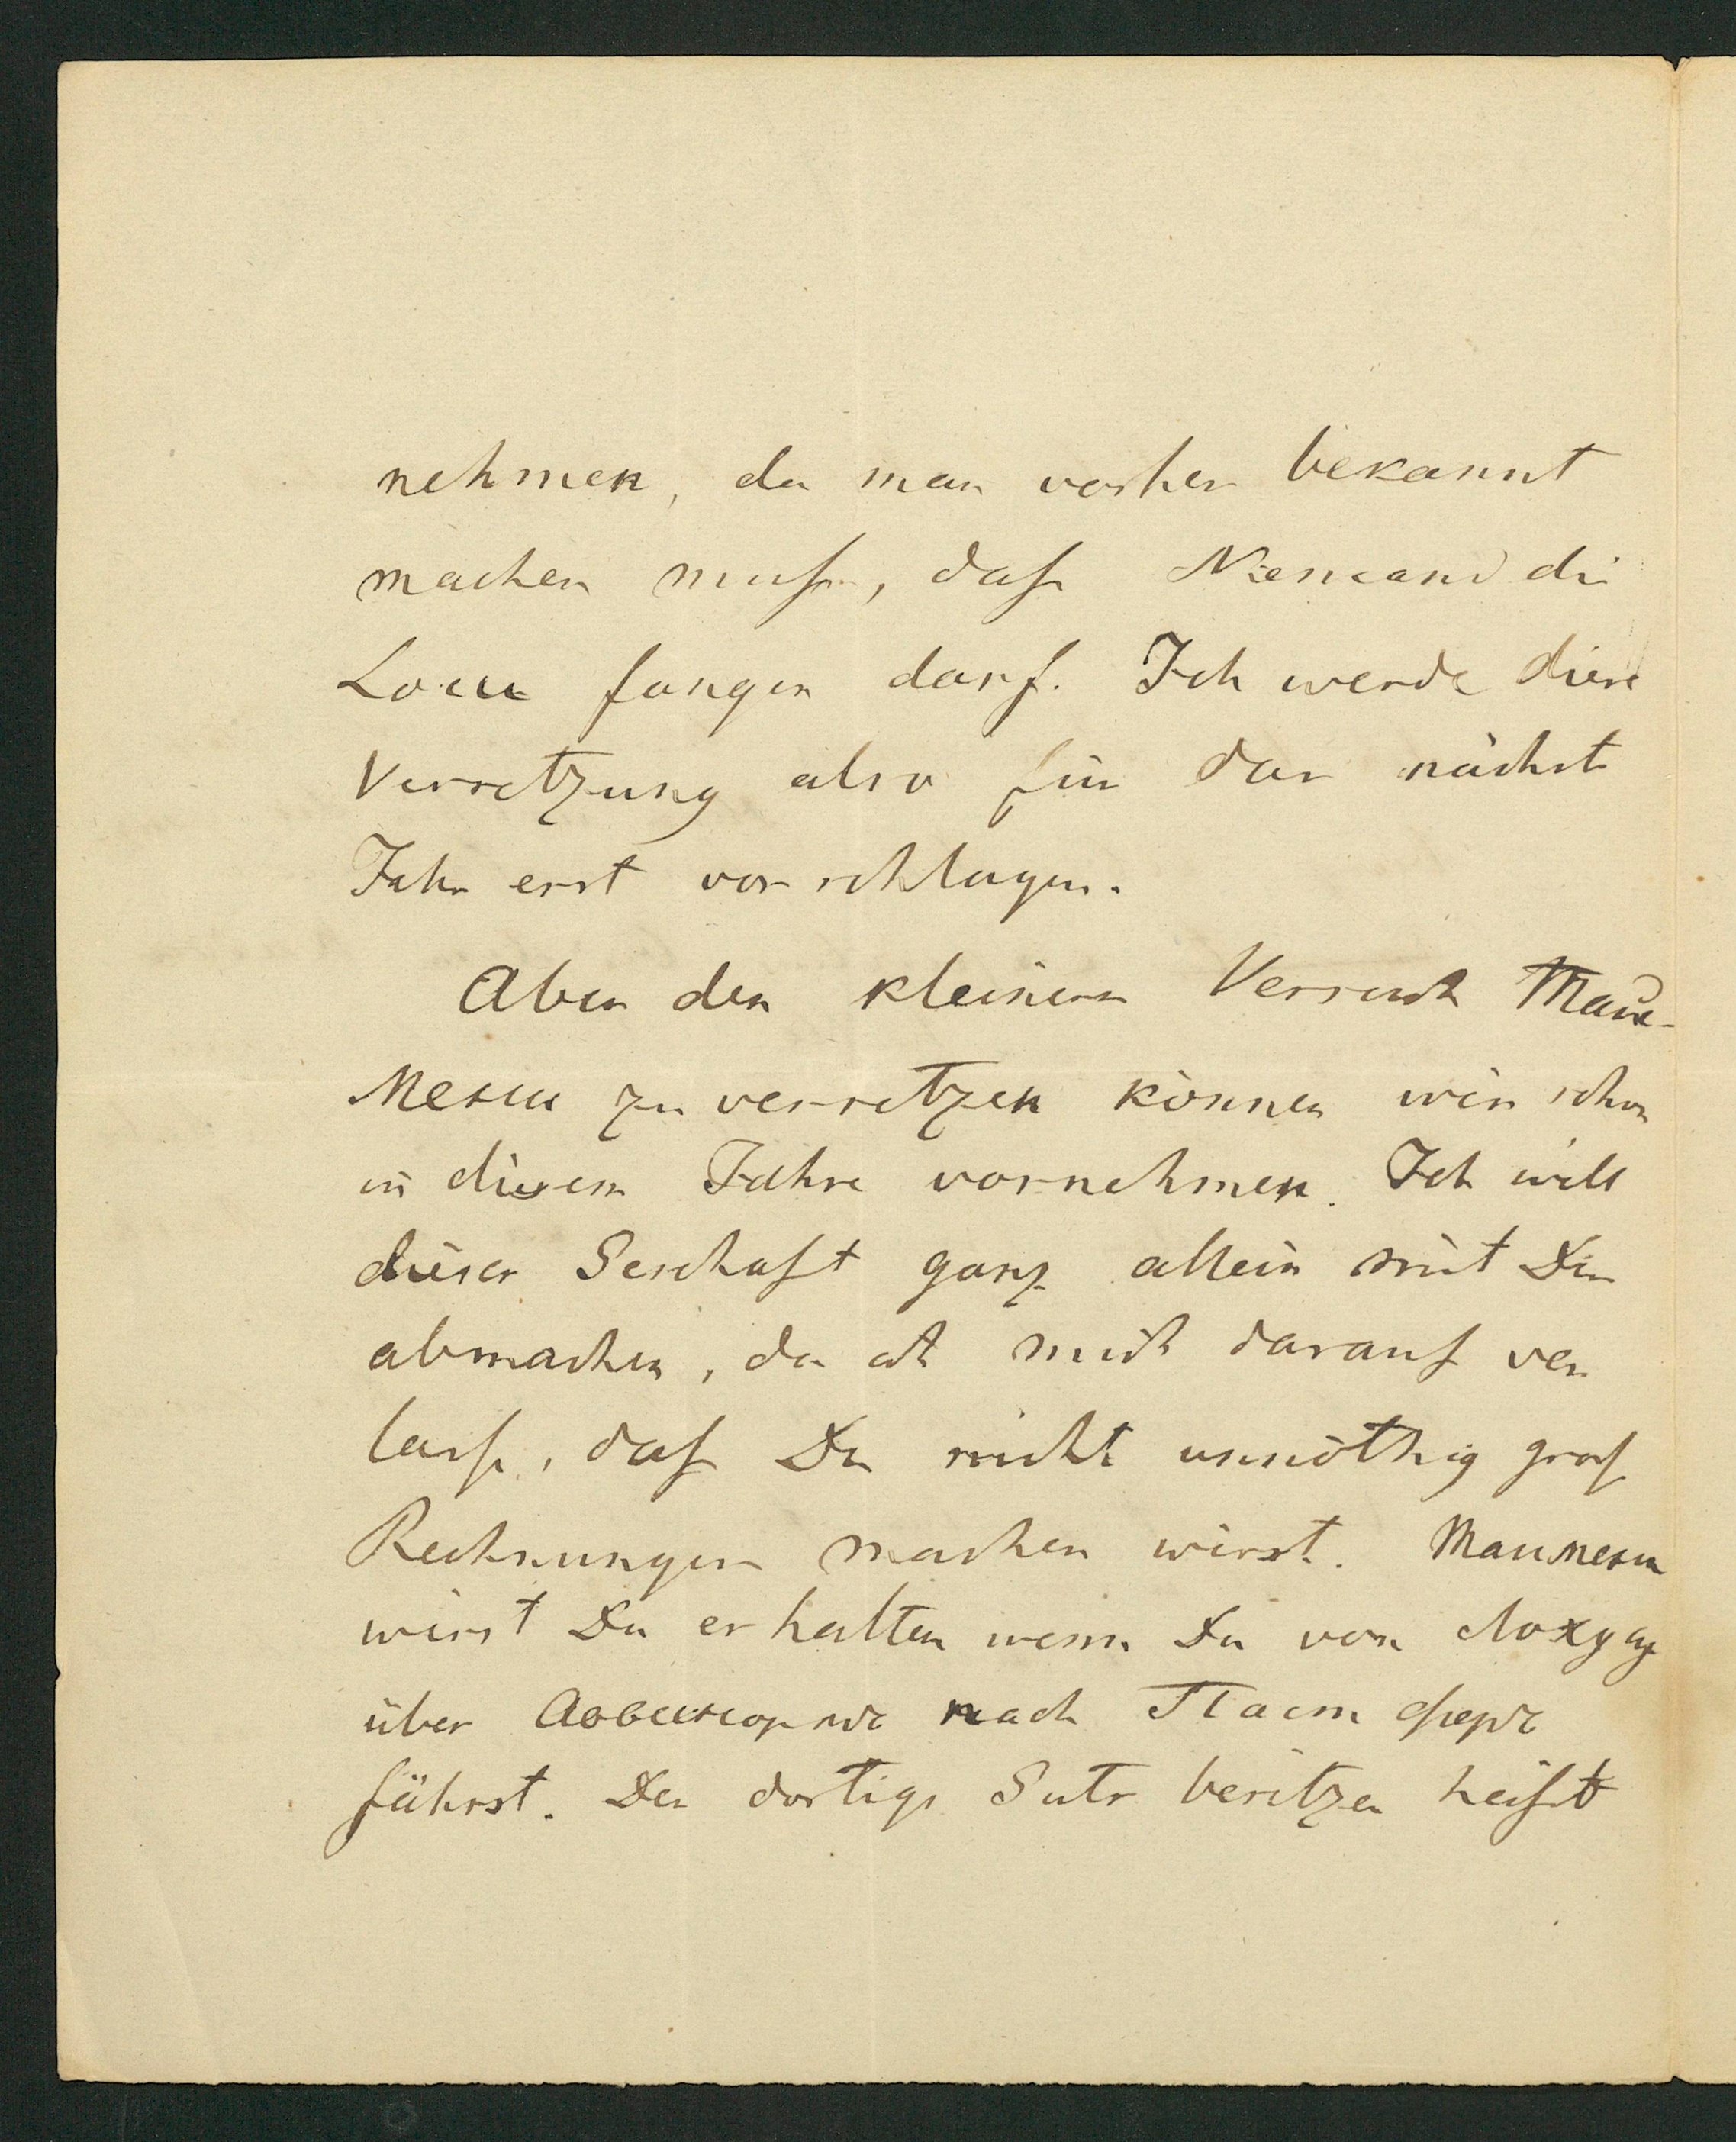 nehmen, da man vorher bekannt
machen muß, daß Niemand die
Locu fangen darf. Ich werde diese
Versetzung also für das nächste
Jahr erst vorschlagen.
Aber den kleinern Versuch
zu versetzen können wir schon
in diesem Jahre vornehmen. Ich will
dieses Geschäft ganz allein mit Dir
abmachen, da ich mich darauf ver
lasse, daß Du nicht unnöthig große
Rechnungen machen wirst.
wirst Du erhalten wenn Du von Локсу
über nach
fährst. Der dortige Guts besitzer heißt